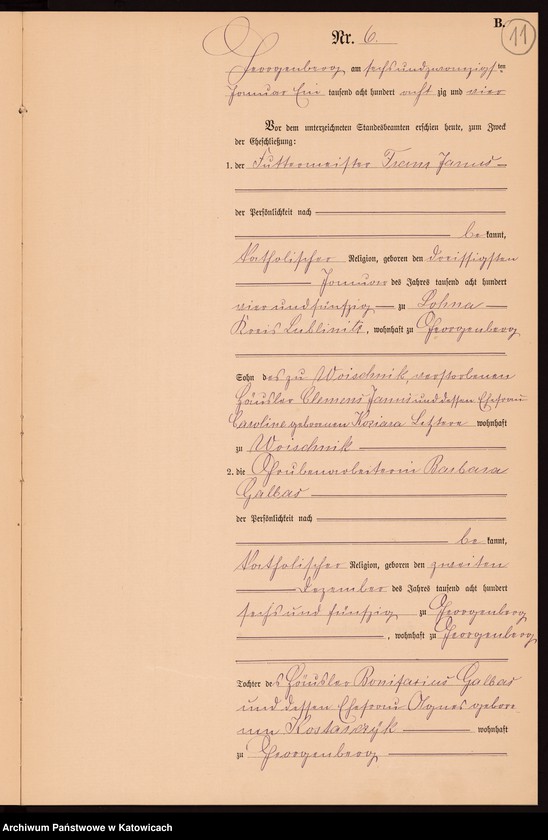 B.
11
Nr. 6.
Georgenberg am sechsundzwanzigsten
Januar Ein tausend acht hundert acht zig und vier
Vor dem unterzeichneten Standesbeamten erschien heute, zum Zweck
der Eheschließung:
1. der Futtermeister Franz Janus
der Persönlichkeit nach
be kannt,
katholischer Religion, geboren den dreissigsten
Januar des Jahres tausend acht hundert
vier und fünfzig zu Lohna
Kreis Lublinitz, wohnhaft zu Georgenberg
Sohn des zu Woischnik, verstorbenen
Häusler Clemens Janus und dessen Ehefrau
Caroline geborenen Koziara Letztere wohnhaft
zu Woischnik
2. die Grubenarbeiterin Barbara
Galbas
der Persönlichkeit nach
be kannt,
katholischer Religion, geboren den zweiten
Dezember des Jahres tausend acht hundert
sechs und fünfzig zu Georgenberg
, wohnhaft zu Georgenberg
Tochter des Häusler Bonifatius Galbas
und dessen Ehefrau Agnes gebore
nen wohnhaft
zu Georgenberg
Archiwum Państwowe w Katowicach